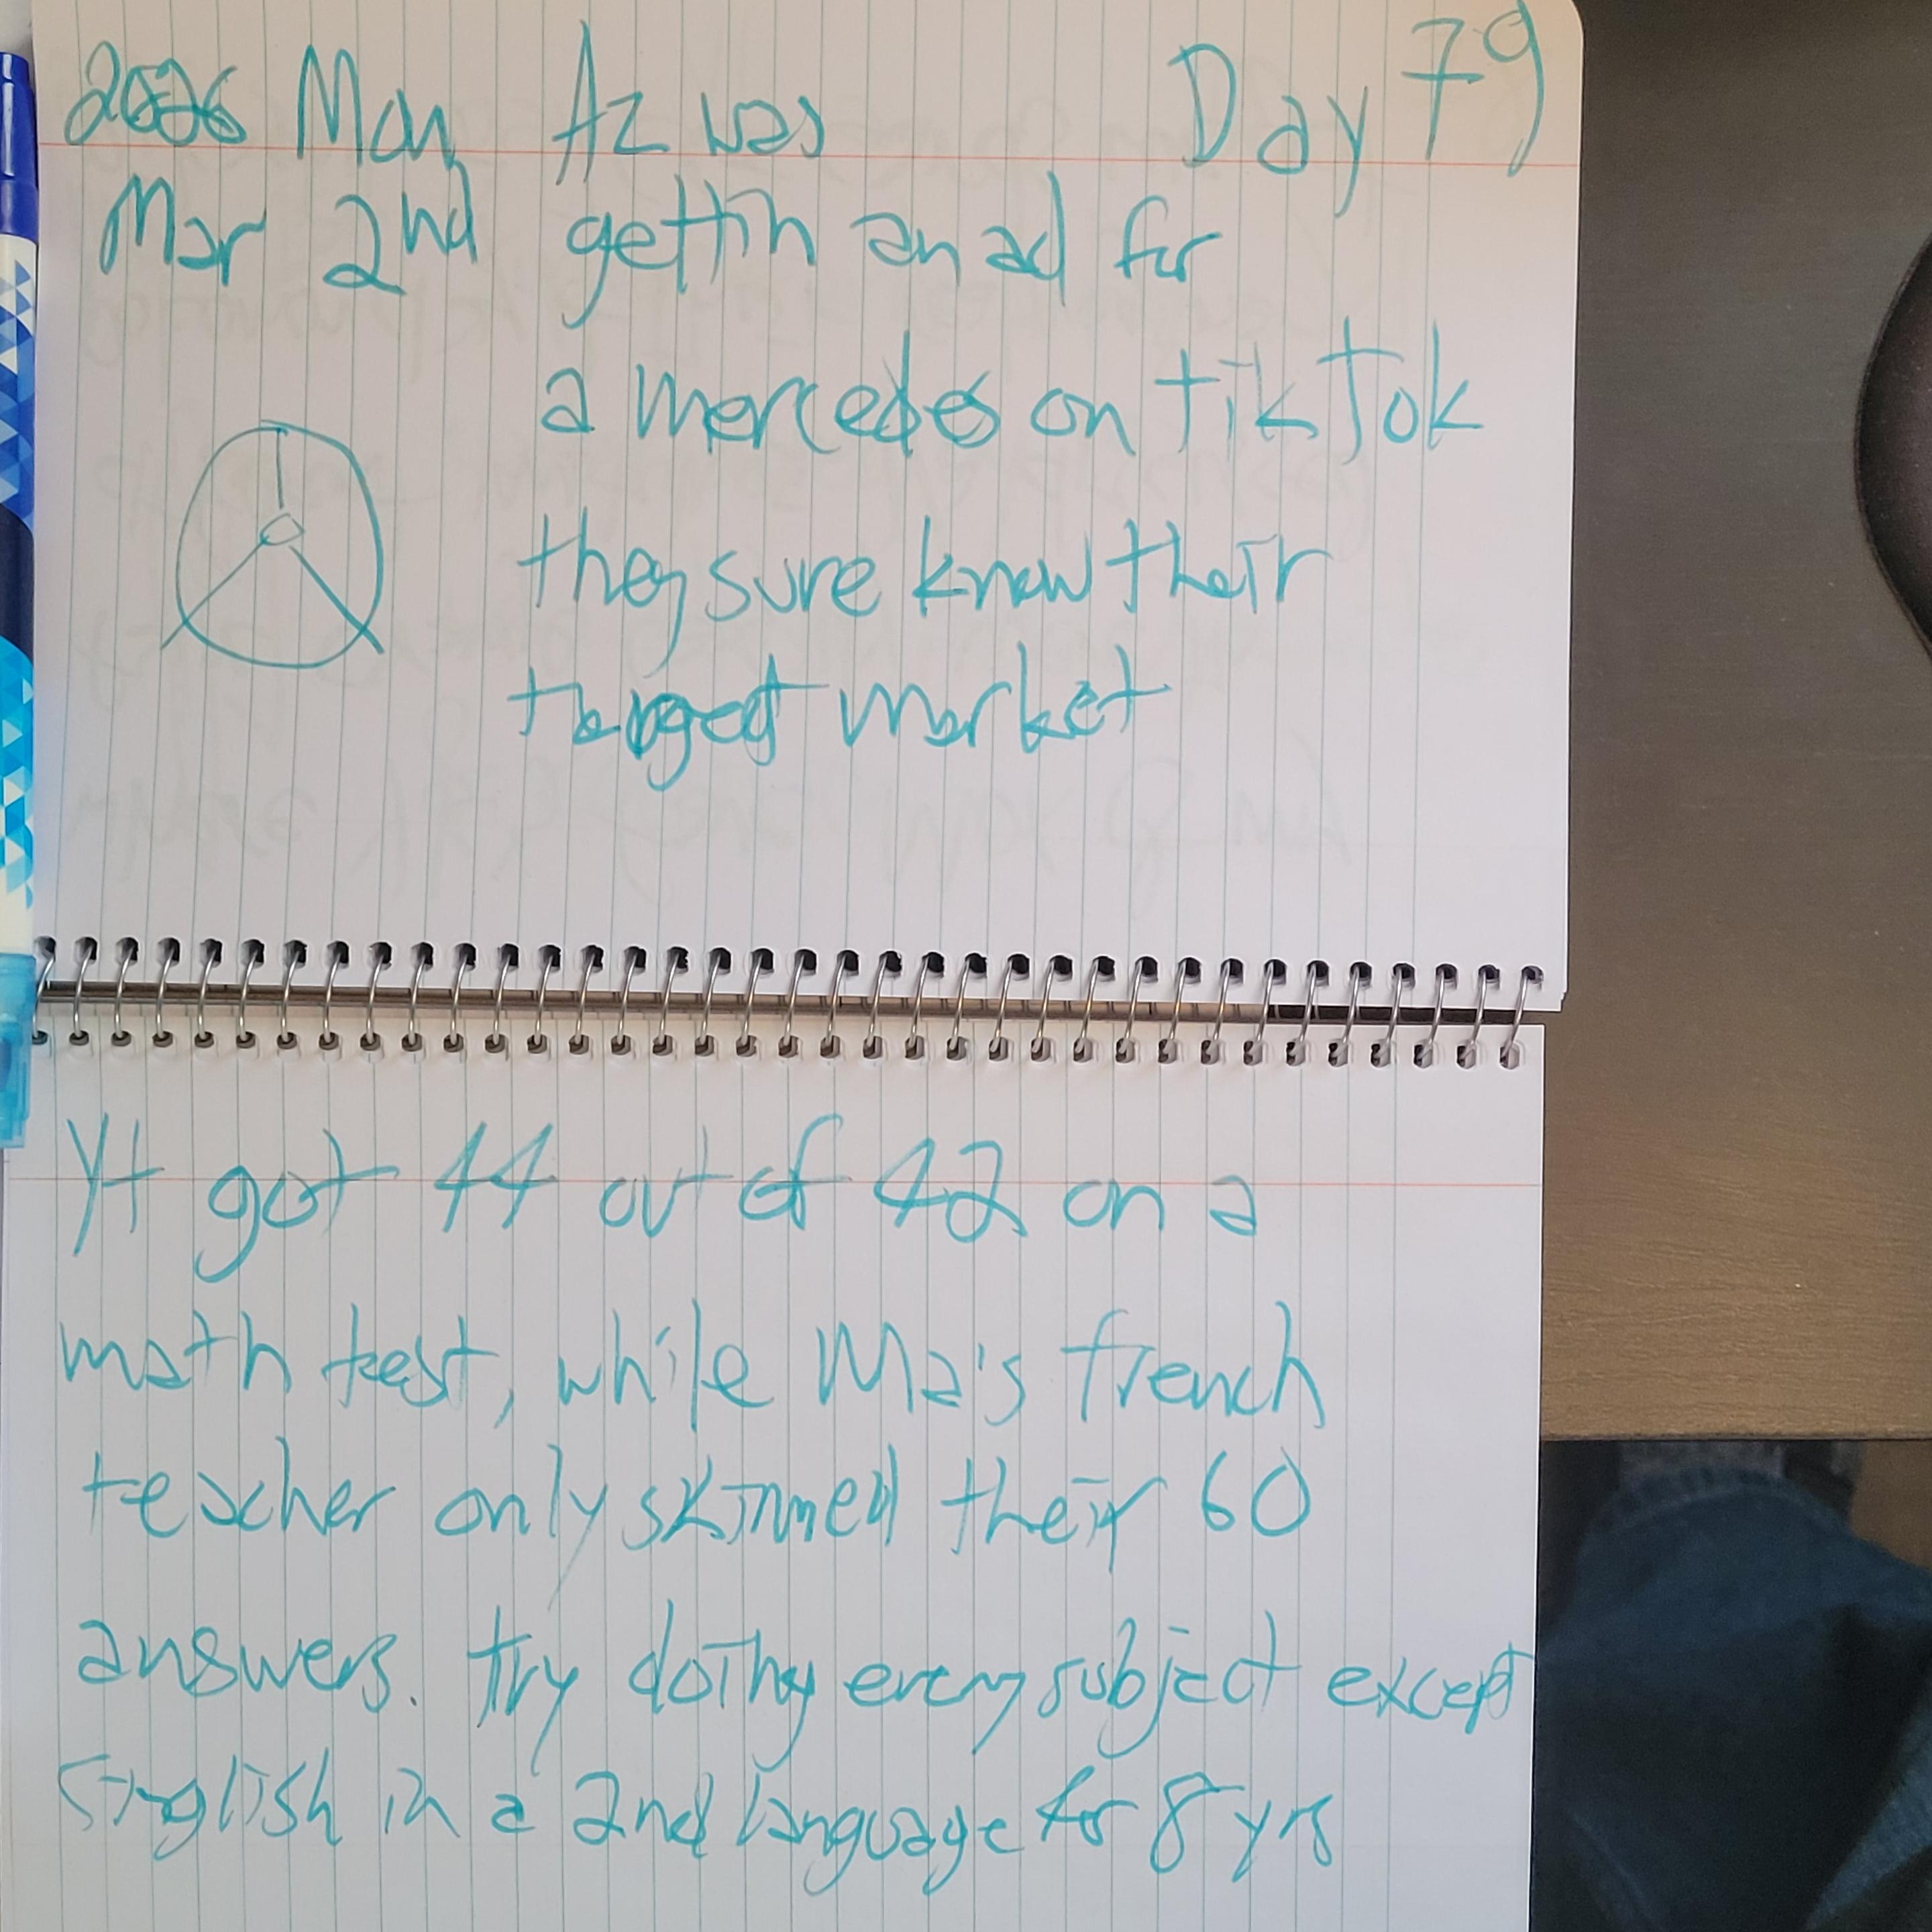 2026 Mon Az was Day 79
Mar 2nd gettin an ad for
a mercedes on TikTok
they sure know their
target market
Yt got 44 out of 42 on a
math test, while Ma's french
teacher only skimmed their 60
answers. try doing every subject except
English in a 2nd language for 8 yrs